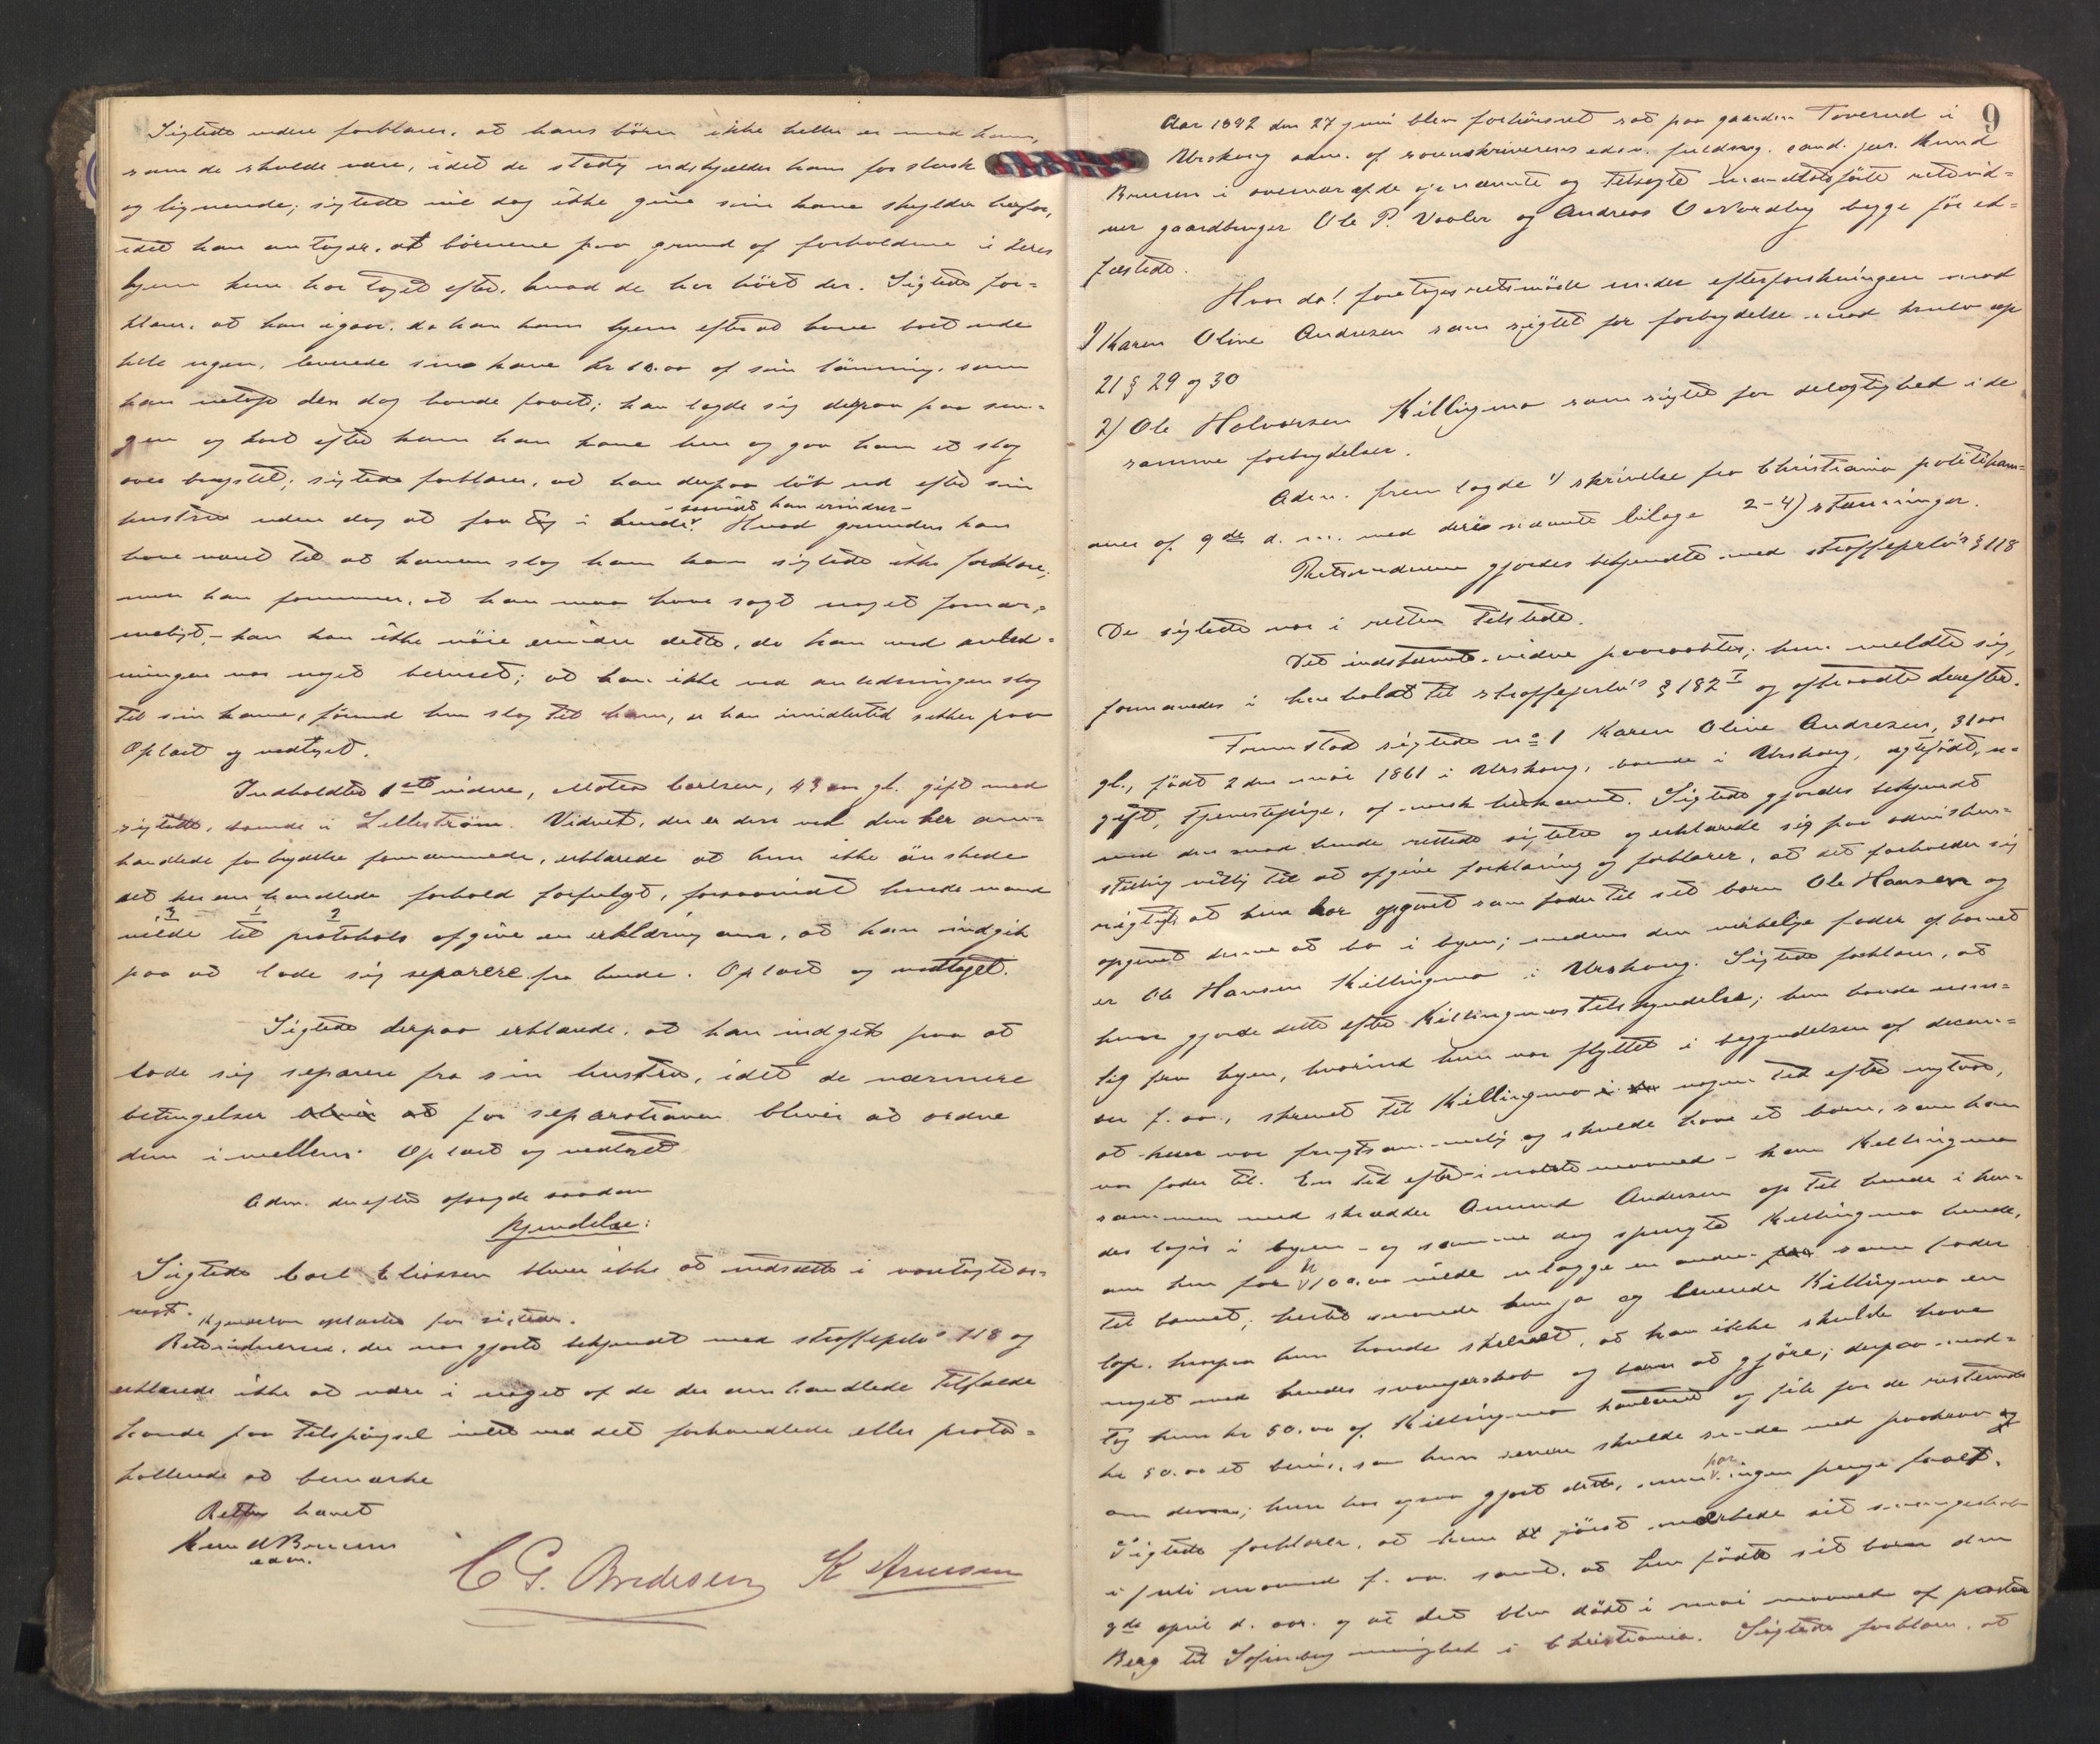 Sigtede videre forklarer, at hans börn ikke heller er mod ham,
som de skulde være, idet de stadig udskjælder ham for slusk
og lignende; sigtede vil dog ikke give sin kone skylden herfor,
idet han antager, at börnene paa grund af forholdene i deres
hjem kun har taget efter, hvad de har hört der. Sigtede for-
klarer, at han igaar, da han kom hjem efter at have vært ude
hele ugen, leverede sin kone kr 10.00 af sin lönning, som
han netop den dag havde faaet; han lagde sig derpaa paa sen-
gen og kort efter kom han kone hen og gav ham et slag
over brystet; sigtede forklarer, at han derpaa löb ud efter sin
hustru uden dog at faa tag i hende. - saavidt han erindrer - Hvad grunden kan
have været til at konen slog ham kan sigtede ikke forklare;
men han formener, at han maa have sagt noget fornær-
meligt, - han kan ikke nöie erindre dette, da han ved anled-
ningen var noget beruset; at han ikke ved anledningen slog
til sin kone, förend hun slog til ham, er han imidlertid sikker paa
Oplæst og vedtaget.
Indkaldtes 1ste vidne, Mathea Carlsen, 43 aar gl. gift med
sigtede, boende i Lilleström. Vidnet, der er den ved den her om-
handlede forbrydelse fornærmede, erklærede at hun ikke önskede
det her omhandlede forhold forfulgt, forsaavidt hendes mand
3 1 2
vilde til protokols afgive en erklæring om, at han indgik
paa at lade sig separere fra hende. Oplæst og vedtaget.
Sigtede derpaa erklærede, at han indgik paa at
lade sig separere fra sin hustru, idet de nærmere
betingelser bliver at for separationen bliver at ordne
dem imellem. Oplæst og vedtaget
Adm. derefter afsagde saadan
Kjendelse:
Sigtede Carl Eliassen bliver ikke at indsætte i varetægtsar-
rest. Kjendelsen oplæstes for sigtede.
Retsvidnerne, der var gjort bekjendt med straffeplov's 118 og
erklærede ikke at være i noget af de der omhandlede tilfælde
havde paa tilspörgsel intet ved det forhandlede eller proto-
kollerede at bemærke
Retten hævet
Knud Bruun
adm.
C G. Andresen K Arnesen
9
Aar 1892 den 27 juni blev forhörsret sat paa gaarden Toverud i
Urskoug adm. af sorenskriverens edsv. fuldmæg. cand. jur. Knud
Bruun i overvær af de opnævnte og tilsagte mandtalsförte retsvid-
ner gaardbruger Ole P. Vaaler og Andreas O Nordby begge för ed-
fæstede.
Hvor da! foretoges retsmöde under efterforskningen mod
1) Karen Oline Andresen som sigtet for forbrydelse mod krulov kap
21 § 29 og 30
2) Ole Halvorsen Killingmo som sigtet for delagtighed i de
samme forbrydelser.
Adm. fremlagde 1) skrivelse fra Christiania politikam-
mer af 9de d. m. med deri nævnte bilage 2-4) stævninger.
Retsvidnerne gjordes bekjendte med straffeprlov's § 118
De sigtede var i retten tilstede.
Det indstævnte vidne paaraabtes; hun meldte sig,
formanedes i henhold til straffeprlov's § 182 I og aftraadte derefter.
Fremstod sigtede no 1 Karen Oline Andresen, 31 aar
gl., födt 2den mai 1861 i Urskoug, boende i Urskoug, ægtefödt, u-
gift, tjenestepige, af norsk herkomst. Sigtede gjordes bekjendt
med den mod hende rettede sigtelse og erklærede sig paa administ...
stilling villig til at afgive forklaring og forklarer, at det forholder sig
rigtigt, at hun har opgivet som fader til sit barn Ole Hansen og
opgivet denne at bo i byen; medens den virkelige fader af barnet
er Ole Hansen Killingmo i Urskoug. Sigtede forklarer, at
hun gjorde dette efter Killingmos tilskyndelse; hun havde nem-
lig fra byen, hvorind hun var flyttet i begyndelsen af decem-
ber f. aar, skrevet til Killingmo nogen tid efter nytaar,
at hun var frugtsommelig og skulde have et barn, som han
var fader til. En tid efter - i marts maaned - kom Killingmo
sammen med skrædder Amund Andersen op til hende i hen-
des logis i byen - og samme dag spurgte Killingmo hende,
om hun for kr 100.00 vilde udlægge en anden som fader
til barnet; hertil svarede hun ja og leverede Killingmo en
lap, hvorpaa hun havde skrevet, at han ikke skulde have
noget med hendes svangerskab og barn at gjöre; derpaa mod-
tog hun kr 50.00 af Killingmo kontant og fik for de resterende
kr 50.00 et bevis, som hun senere skulde sende med paakrav og
om denne; hun har ogsaa gjort dette, men har ingen penge faaet.
Sigtede forklarer, at hun förist mærkede sit svangerskab
i juli maaned f. aar. samt, at hun födte sit barn den
9de april d. aar. og at det blev döbt i mai maaned af pastor
Berg til Sofienberg menighed i Christiania. Sigtede forklarer, at